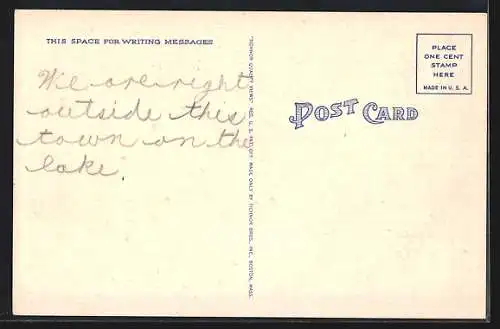 THIS SPACE FOR WRITING MESSAGES
We are right
outside this
town on the
lake.
POST CARD
PLACE
ONE CENT
STAMP
HERE
MADE IN U. S. A.
MADE ONLY BY TICHNOR BROS., INC., BOSTON, MASS.